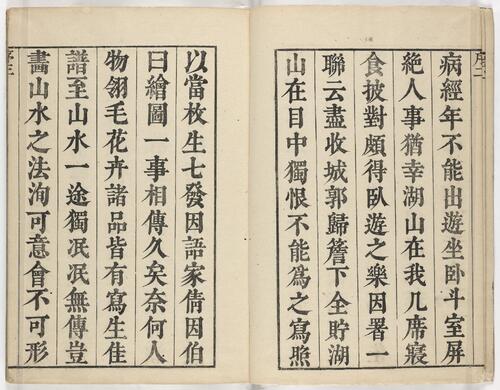 病經年不能出遊坐卧斗室屏
絶人事猶幸湖山在我几席寢
食披對頗得卧遊之樂因署一
聯云盡收城郭歸簷下全貯湖
山在目中獨恨不能為之寫照
以當枚生七發因語家倩因伯
曰繪圖一事相傳久矣奈何人
物翎毛花卉諸品皆有寫生佳
譜至山水一途獨泯泯無傳豈
畵山水之法洵可意會不可形